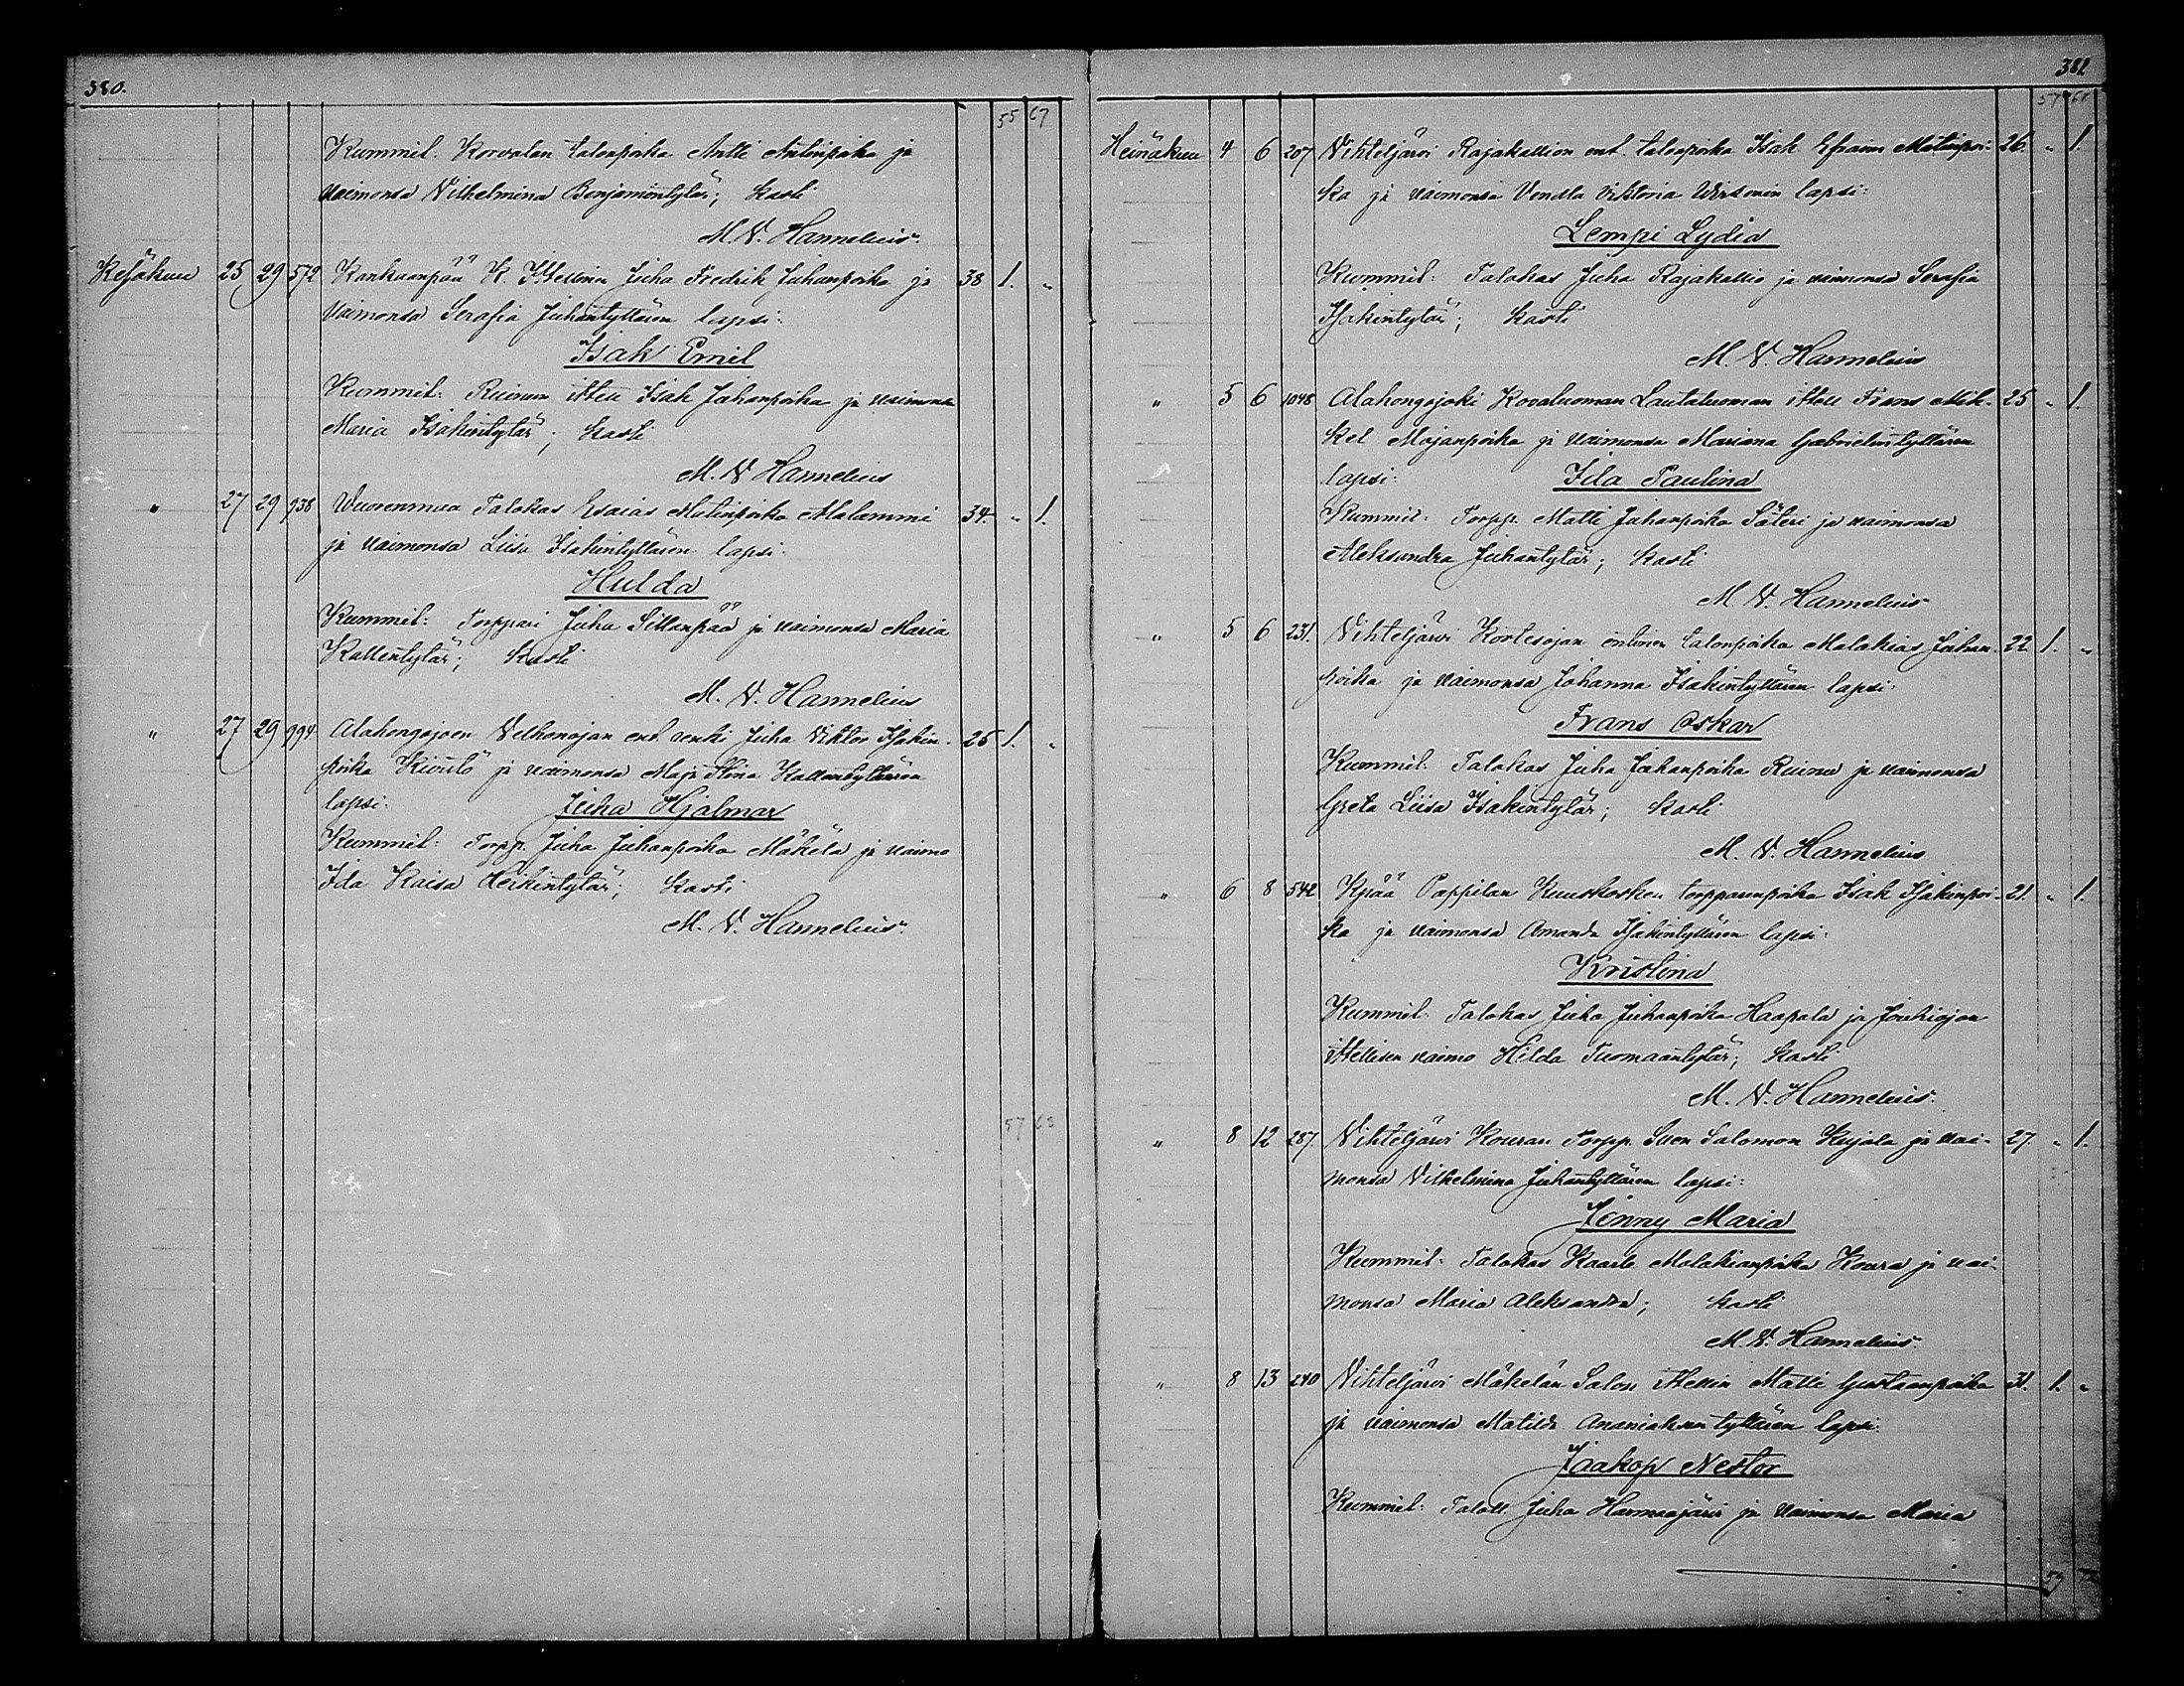 380.
55 67
Kummit: Korvalan talonpoika Antti Antinpoika ja
vaimonsa Vilhelmina Benjamintytär; kasti
M. V. Hannelius.
Kesäkuu 25 29 572 Kankaanpää K. Itsellinen Juha Fredrik Juhanpoika ja 38 1. "
vaimonsa Serafia Juhantyttären lapsi:
Isak Emil
Kummit: Ruinun itsell Isak Juhanpoika ja vaimonsa
Maria Isakintytär; kasti
M. V. Hannelius
" 27 29 938 Vuorenmaa Talokas Esaias Matinpoika Malammi 34. " 1.
ja vaimonsa Liisa Isakintyttären lapsi:
Hulda
Kummit: Torppari Juha Sillanpää ja vaimonsa Maria
Kallentytär; kasti
M. V. Hannelius
" 27 29 994 Alahongojoen Velhonojan ent. renki Juha Viktor Isakin- 25 1. "
poika Kivistö ja vaimonsa Maja Stina Kallentyttären
lapsi: Juha Hjalmar
Kummit: Torpp. Juha Juhanpoika Mäkelä ja vaimo
Ida Kaisa Heikintytär; kasti
M. V. Hannelius.
57 68
381
57 68
Heinäkuu 4 6 207 Vihteljärvi Rajakallion ent. talonpoika Isak Efraim Matinpoi- 26. " 1
ka ja vaimonsa Vendla Viktoria Virtasen lapsi:
Lempi Lydia
Kummit: Talokas Juha Rajakallio ja vaimonsa Serafia
Isakintytär; kasti
M. V. Hannelius
" 5 6 1048 Alahongojoki Kovaluoman Lautaluoman itsell Frans Mik- 25 " 1.
kel Majanpoika ja vaimonsa Mariana Gabrielintyttären
lapsi: Ida Paulina
Kummit: Torpp. Matti Juhanpoika Säteri ja vaimonsa
Aleksandra Juhantytär; kasti
M. V. Hannelius
" 5 6 231. Vihteljärvi Kortesojan entinen talonpoika Malakias Juhan- 22 1. "
poika ja vaimonsa Johanna Isakintyttären lapsi:
Frans Oskar
Kummit: Talokas Juha Juhanpoika Ruinu ja vaimonsa
Greta Liisa Isakintytär; kasti
M. V. Hannelius
" 6 8 542 Kyrää Pappilan Kuuskosken torpparinpoika Isak Isakinpoi- 21. " 1.
ka ja vaimonsa Amanda Isakintyttären lapsi:
Kristina
Kummit: Talokas Juha Juhanpoika Haapala ja Joukiojan
itsellisen vaimo Hilda Tuomaantytär; kasti
M. V. Hannelius.
" 8 12 287. Vihteljärvi Kouran Torpp. Sven Salomon Kujala ja vai- 27. " 1.
monsa Vilhelmina Juhantyttären lapsi:
Jenny Maria
Kummit: Talokas Kaarle Malakianpoika Koura ja vai-
monsa Maria Aleksandra; kasti
M. V. Hannelius.
" 8 13 240 Vihteljärvi Mäkelän Salon itsellin Matti Gustaanpoika 31. 1. "
ja vaimonsa Matilda Ananiaksen tyttären lapsi:
Jaakop Nestor
Kummit: Taloll. Juha Harmaajärvi ja vaimonsa Maria
59